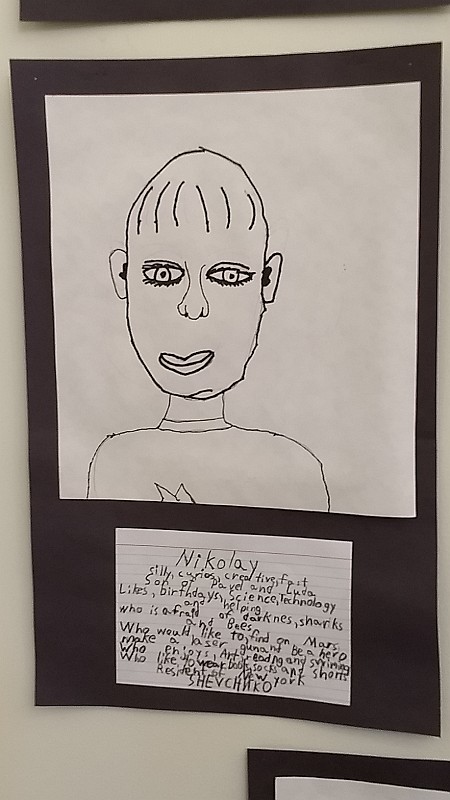 Nikolay
silly, curios, creative, fast
Son of Pavel and Luda
Likes, birthdays, science, Technology
and helping
who is afraid of darknes, shariks
and Bees
Who would, like to, find on Mars,
make a laser gun and Be a hero
who enjoys, Art, reading and swiming
Who like to wear, socks and shorts
Resident of New york
SHEVCHNKO